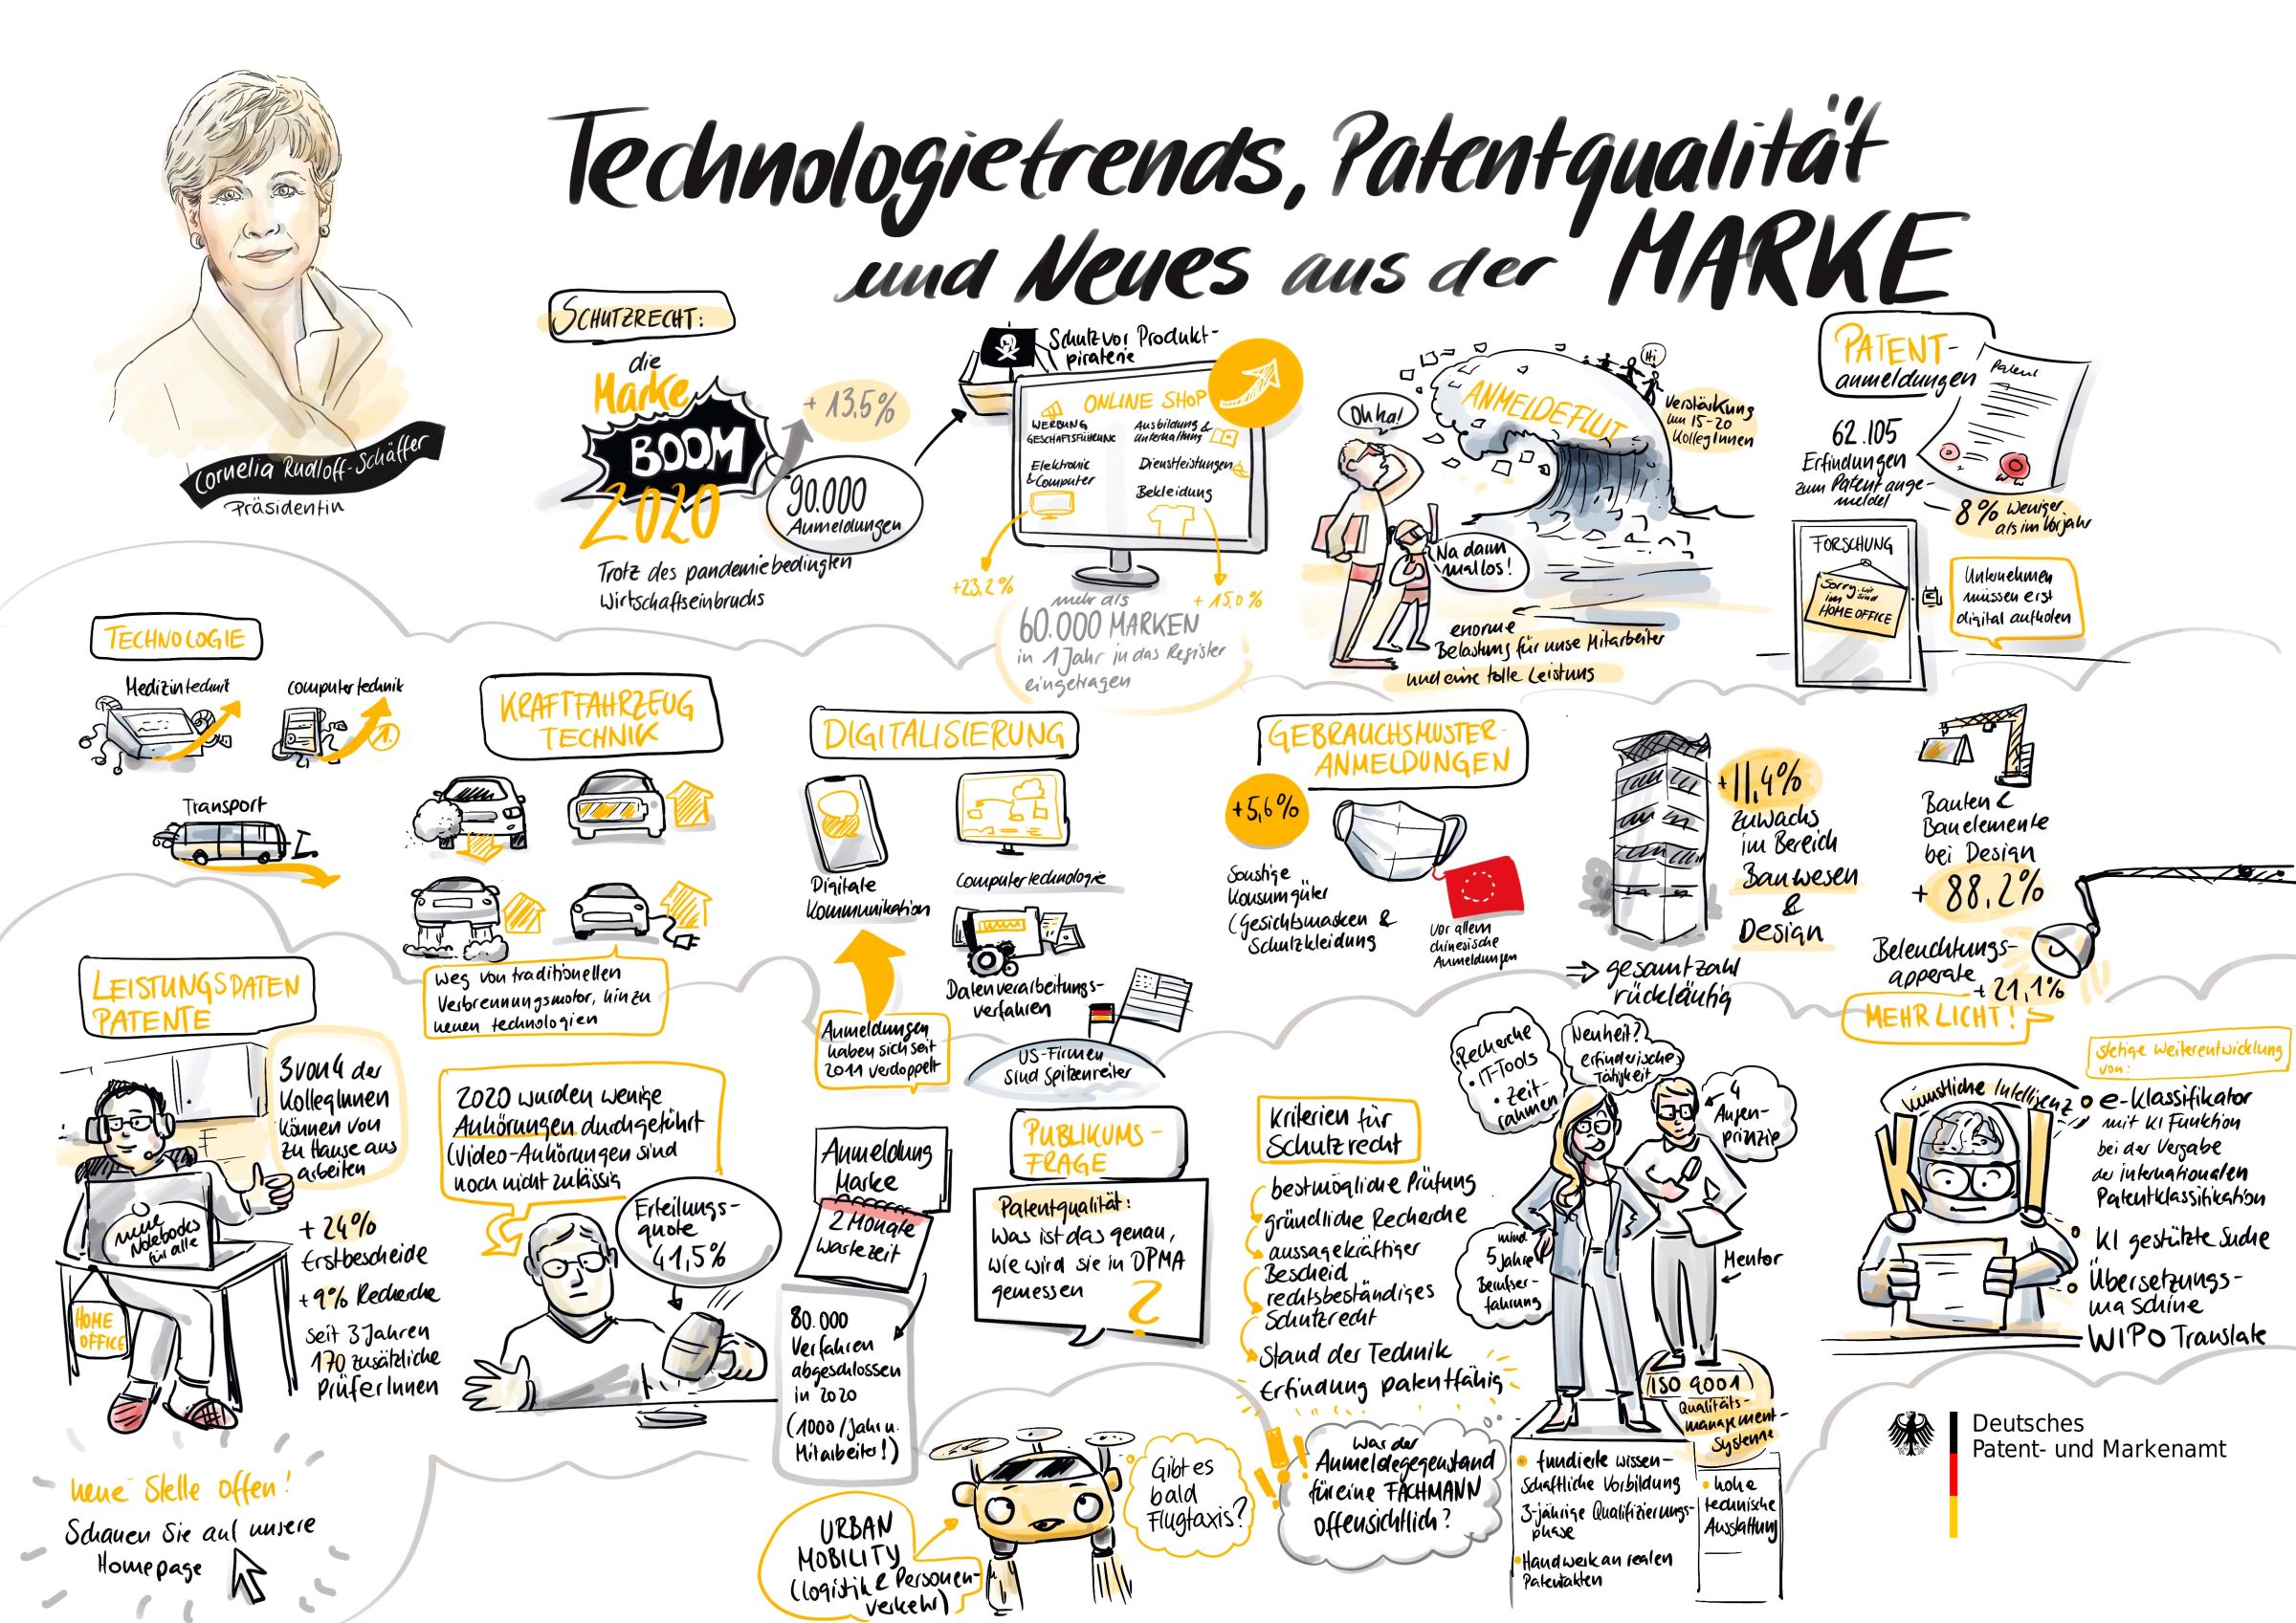 Technologietrends, Patentqualität
und Neues aus der MARKE
Cornelia Rudloff-Schäffer
Präsidentin
SCHUTZRECHT:
die
Marke
BOOM
2020
+ 13,5%
90.000
Anmeldungen
Trotz des pandemiebedingten
Wirtschaftseinbruchs
Schutz vor Produkt-
piraterie
ONLINE SHOP
WERBUNG
GESCHÄFTSFÜHRUNG
Ausbildung &
Unterhaltung
Elektronic
& Computer
Dienstleistungen
Bekleidung
+23,2%
+ 15,0%
mehr als
60.000 MARKEN
in 1 Jahr in das Register
eingetragen
Oh ha!
Na dann
mal los!
ANMELDEFLUT
Hi
Verstärkung
um 15-20
KollegInnen
enorme
Belastung für unse Mitarbeiter
und eine tolle Leistung
PATENT-
anmeldungen
Patent
62.105
Erfindungen
zum Patent ange-
meldet
8% weniger
als im Vorjahr
FORSCHUNG
Sorry, wir
sind im
HOME OFFICE
Unternehmen
müssen erst
digital aufholen
TECHNOLOGIE
Medizintechnik
Computertechnik
1.
Transport
KRAFTFAHRZEUG
TECHNIK
weg von traditionellen
Verbrennungsmotor, hin zu
neuen technologien
DIGITALISIERUNG
Digitale
Kommunikation
Computertechnologie
Datenverarbeitungs-
verfahren
Anmeldungen
haben sich seit
2011 verdoppelt
US-Firmen
sind Spitzenreiter
GEBRAUCHSMUSTER-
ANMELDUNGEN
+5,6%
Sonstige
Konsumgüter
(Gesichtsmasken &
Schutzkleidung
vor allem
chinesische
Anmeldungen
+11,4%
Zuwachs
im Bereich
Bauwesen
&
Design
⇒ gesamtzahl
rückläufig
Bauten &
Bauelemente
bei Design
+ 88,2%
Beleuchtungs-
apperate
+ 21,1%
MEHR LICHT!
LEISTUNGSDATEN
PATENTE
3 von 4 der
KollegInnen
können von
zu Hause aus
arbeiten
neue
Notebooks
für alle
HOME
OFFICE
+ 24%
Erstbescheide
+ 9% Recherche
seit 3 Jahren
170 zusätzliche
PrüferInnen
neue Stelle offen!
Schauen Sie auf unsere
Homepage
2020 wurden wenige
Anhörungen durchgeführt
(Video-Anhörungen sind
noch nicht zulässig
Erteilungs-
quote
41,5%
Anmeldung
Marke
2 Monate
Wartezeit
80.000
Verfahren
abgeschlossen
in 2020
(1000/Jahr u.
Mitarbeiter!)
PUBLIKUMS-
FRAGE
Patentqualität:
Was ist das genau,
wie wird sie in DPMA
gemessen
?
URBAN
MOBILITY
(logistik & Personen-
verkehr)
Gibt es
bald
Flugtaxis?
Kriterien für
Schutzrecht
bestmögliche Prüfung
gründliche Recherche
aussagekräftiger
Bescheid
rechtsbeständiges
Schutzrecht
Stand der Technik
Erfindung patentfähig
War der
Anmeldegegenstand
für eine FACHMANN
offensichtlich?
• Recherche
• IT-Tools
• Zeit-
rahmen
Neuheit?
erfinderische
Tätigkeit
4
Augen-
prinzip
mind
5 Jahre
Berufser-
fahrung
Mentor
ISO 9001
Qualitäts-
management-
Systeme
• fundierte wissen-
schaftliche Vorbildung
3-jährige Qualifizierungs-
phase
• Handwerk an realen
Patentakten
• hohe
technische
Ausstattung
stetige Weiterentwicklung
von:
Künstliche Intelligenz
KI
e-Klassifikator
mit KI Funktion
bei der Vergabe
der internationalen
Patentklassifikation
KI gestützte Suche
Übersetzungs-
maschine
WIPO Translate
Deutsches
Patent- und Markenamt